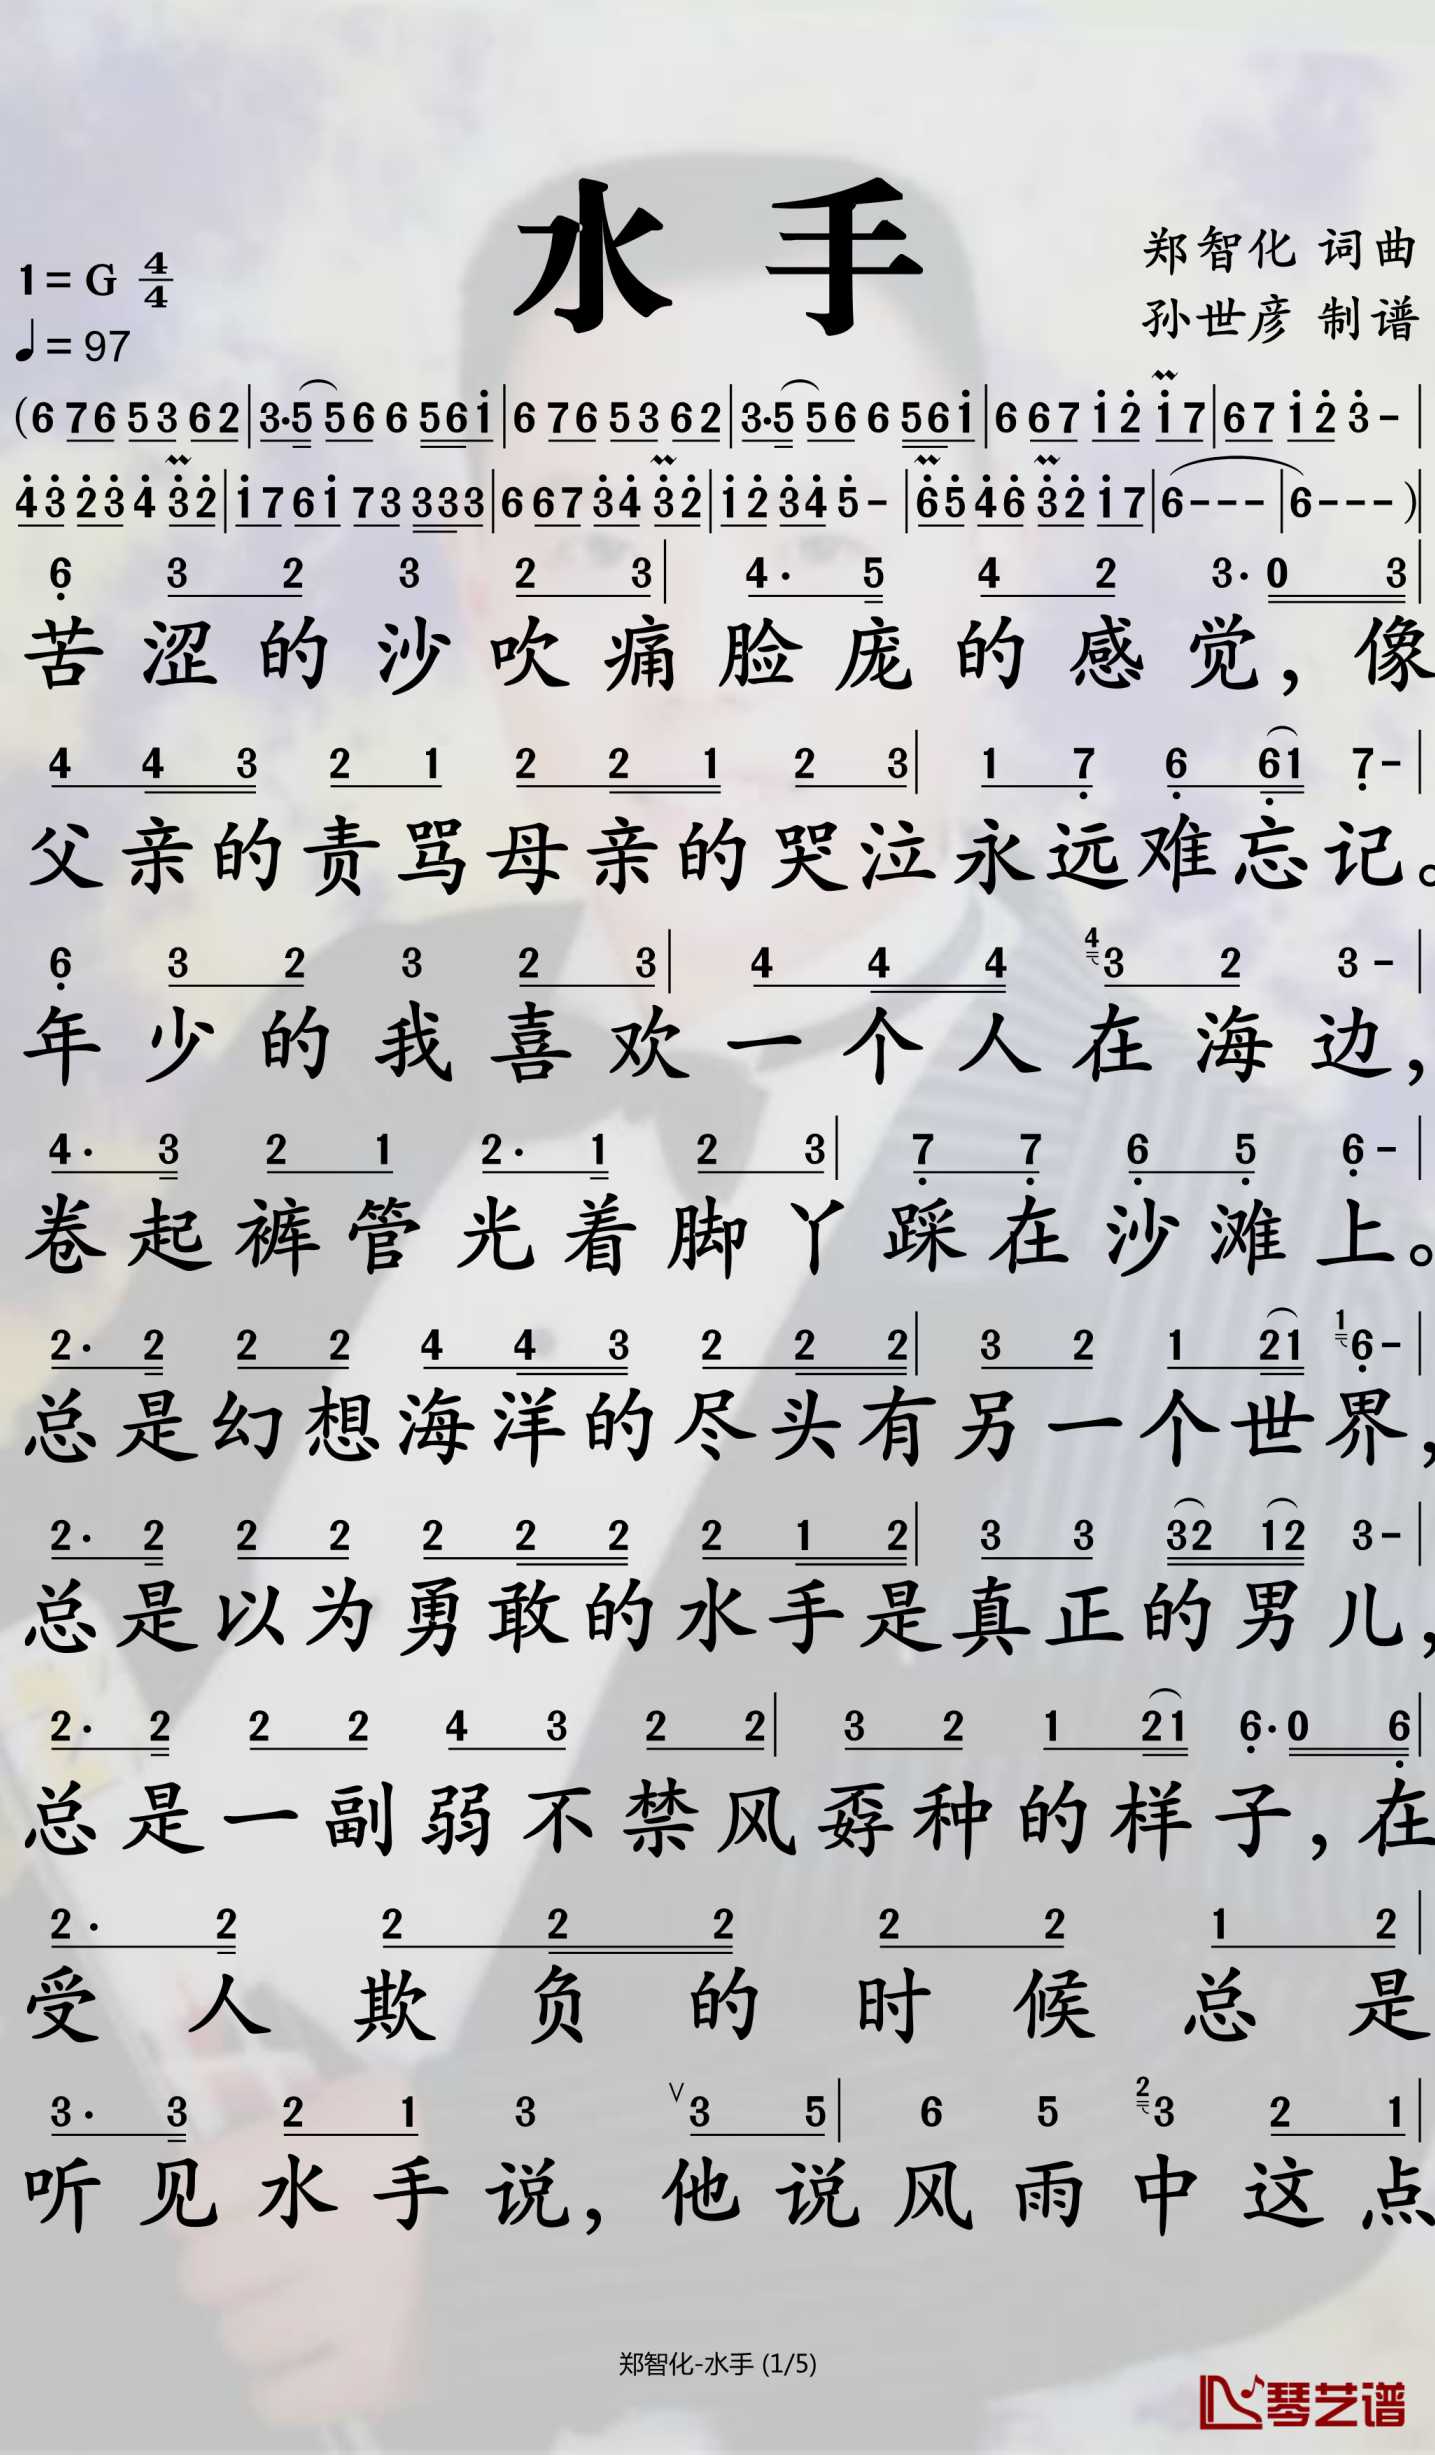 水 手
1=G 4/4
♩=97
郑智化 词曲
孙世彦 制谱
(6 76 53 62|3·5 56 6 56i|6 76 53 62|3·5 56 6 56i|6 67 i2 i7|67 i2 3-|
43 23 4 32|i7 6i 73 333|6 67 34 32|i2 34 5-|65 46 32 i7|6---|6---)|
6 3 2 3 2 3|4· 5 4 2 3·0 3|
苦涩的沙吹痛脸庞的感觉,像
4 4 3 2 1 2 2 1 2 3|1 7 6 61 7-|
父亲的责骂母亲的哭泣永远难忘记。
6 3 2 3 2 3|4 4 4 43 2 3-|
年少的我喜欢一个人在海边,
4· 3 2 1 2· 1 2 3|7 7 6 5 6-|
卷起裤管光着脚丫踩在沙滩上。
2· 2 2 2 4 4 3 2 2 2|3 2 1 21 16-|
总是幻想海洋的尽头有另一个世界,
2· 2 2 2 2 2 2 2 1 2|3 3 32 12 3-|
总是以为勇敢的水手是真正的男儿,
2· 2 2 2 4 3 2 2|3 2 1 21 6·0 6|
总是一副弱不禁风孬种的样子,在
2· 2 2 2 2 2 2 1 2|
受人欺负的时候总是
3· 3 2 1 3 V3 5|6 5 23 2 1|
听见水手说,他说风雨中这点
郑智化-水手 (1/5)
琴艺谱